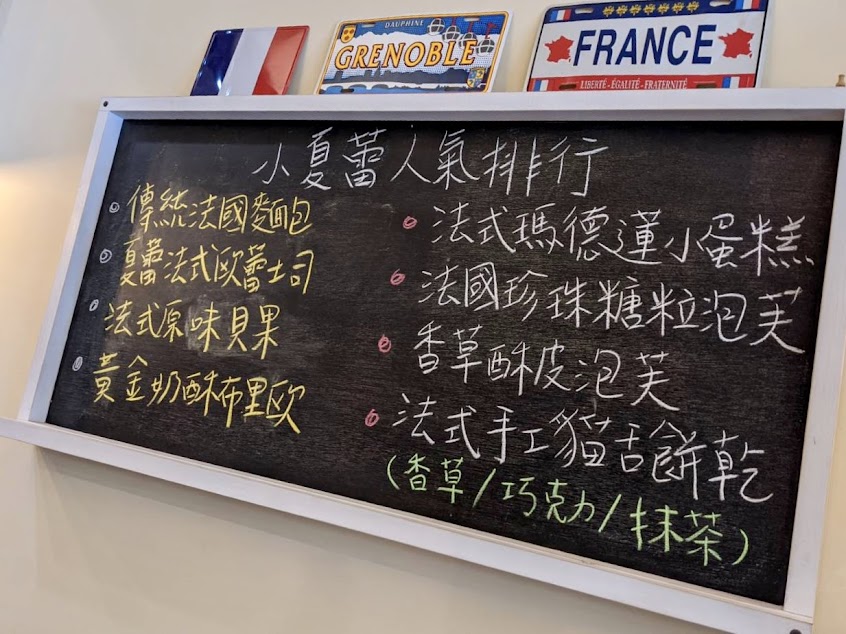 DAUPHINE
GRENOBLE
FRANCE
LIBERTÉ - ÉGALITÉ - FRATERNITÉ
小夏蕾人氣排行
傳統法國麵包
夏蕾法式歐蕾土司
法式原味貝果
黃金奶酥布里歐
法式瑪德蓮小蛋糕
法國珍珠糖粒泡芙
香草酥皮泡芙
法式手工貓舌餅乾
(香草/巧克力/抹茶)